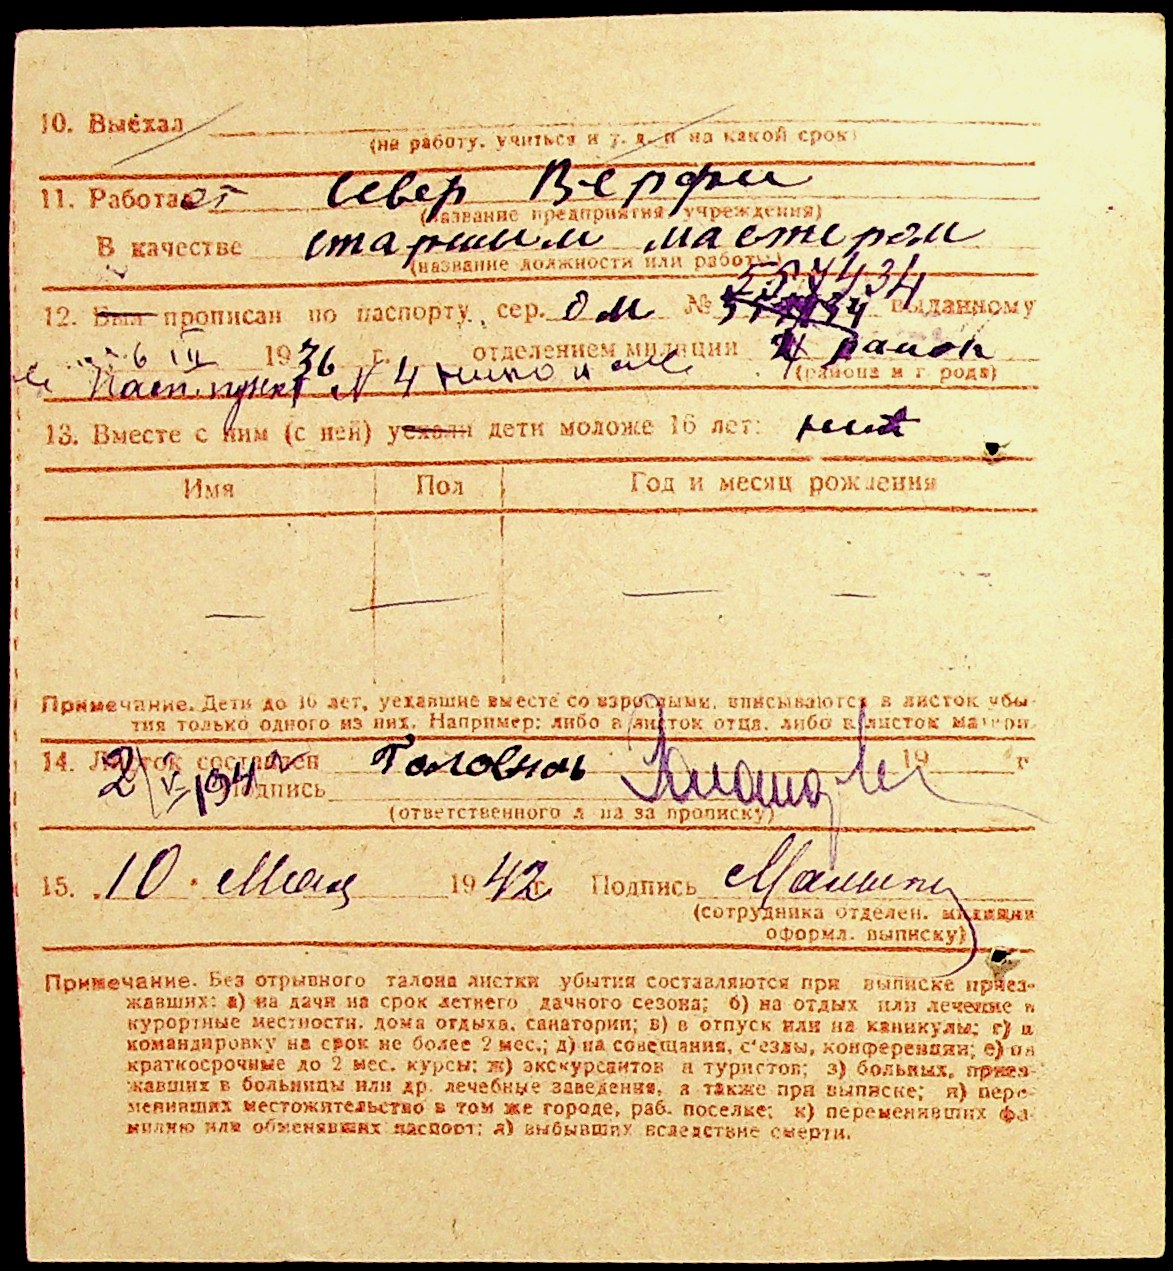 10. Выехал
(на работу, учиться и т. д. и на какой срок)
11. Работает Север Верфи
(название предприятия, учреждения)
В качестве старшим мастером
(название должности или работы)
557434
12. Был прописан по паспорту, сер. ОМ № выданному
6 III 1936 г. отделением милиции район
Пасп. пункт № 4 (района и города)
13. Вместе с ним (с ней) уехали дети моложе 16 лет: нет
Имя Пол Год и месяц рождения
— — — —
Примечание. Дети до 16 лет, уехавшие вместе со взрослыми, вписываются в листок убы-
тия только одного из них. Например: либо в листок отца, либо в листок матери.
14. Листок составлен 19 г.
2/V 1942 Подпись
(ответственного лица за прописку)
15. 10 Мая 1942 г. Подпись
(сотрудника отделен. милиции
оформл. выписку)
Примечание. Без отрывного талона листки убытия составляются при выписке приез-
жавших: а) на дачи на срок летнего дачного сезона; б) на отдых или лечение в
курортные местности, дома отдыха, санатории; в) в отпуск или на каникулы; г) в
командировку на срок не более 2 мес.; д) на совещания, с'езды, конференции; е) на
краткосрочные до 2 мес. курсы; ж) экскурсантов и туристов; з) больных, приез-
жавших в больницы или др. лечебные заведения, а также при выписке; и) пере-
менивших местожительство в том же городе, раб. поселке; к) переменивших фа-
милию или обменявших паспорт; л) выбывших вследствие смерти.